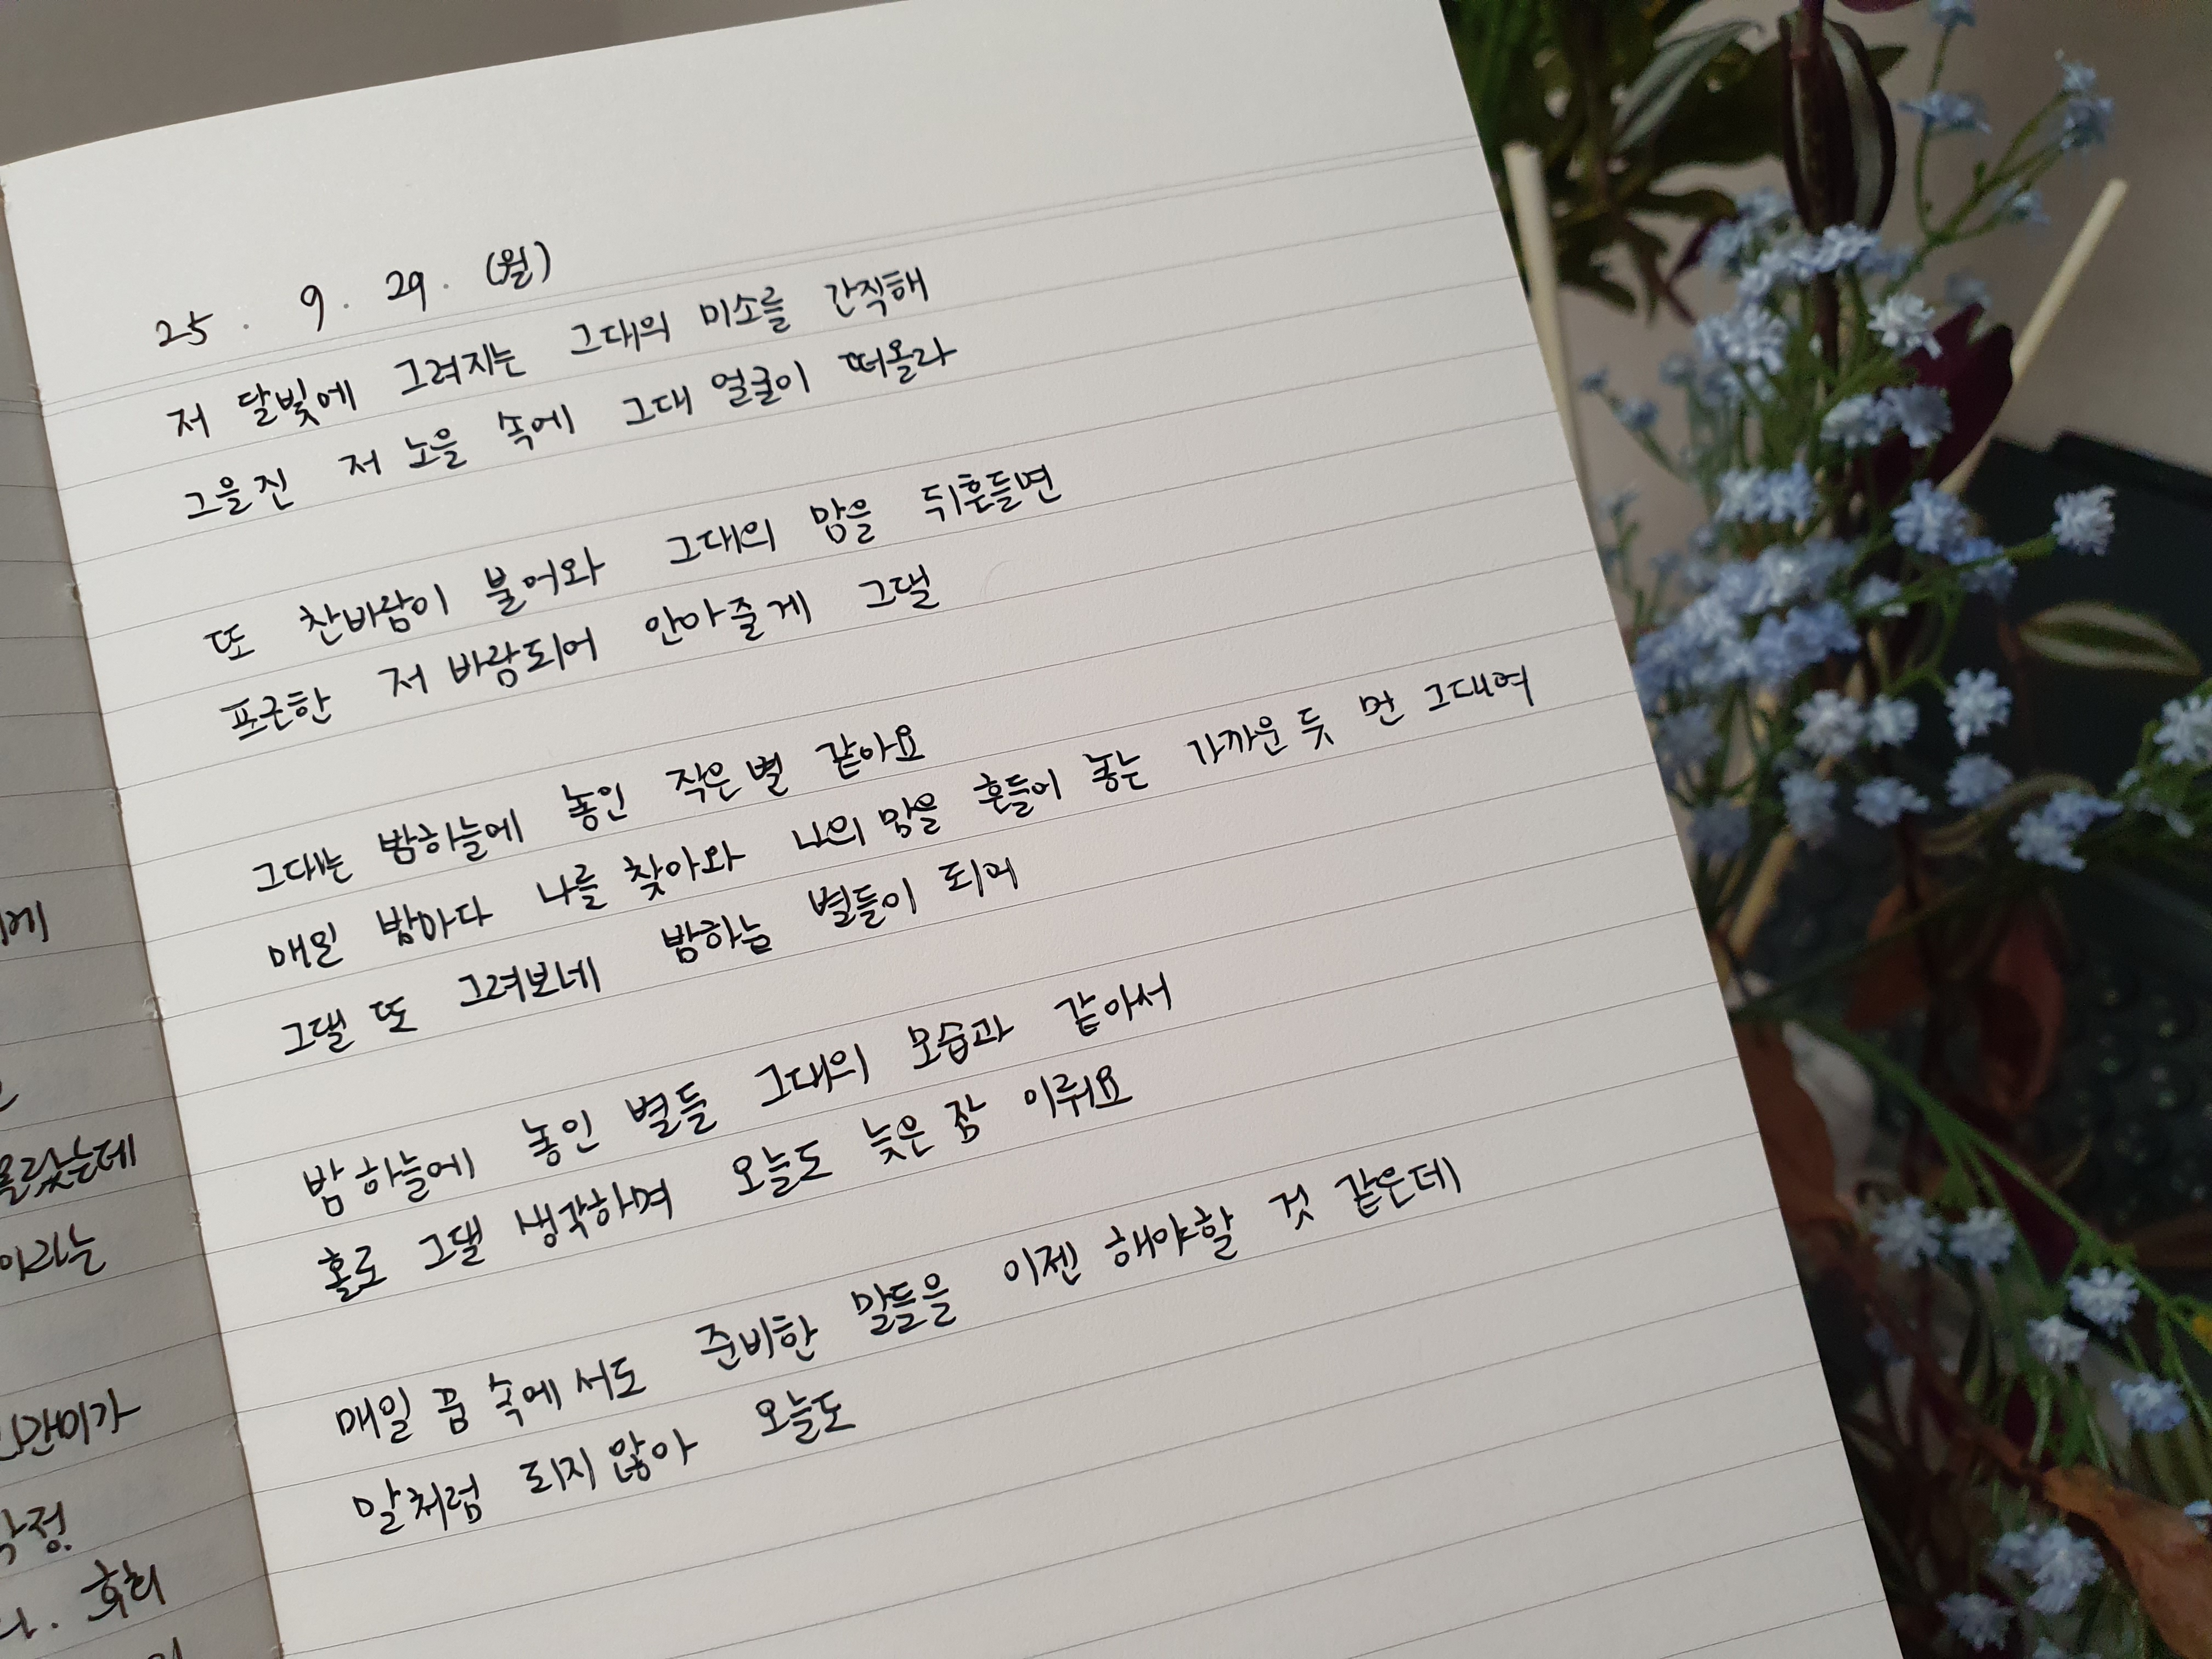 25. 9. 29. (월)
저 달빛에 그려지는 그대의 미소를 간직해
그을진 저 노을 속에 그대 얼굴이 떠올라
또 찬바람이 불어와 그대의 맘을 뒤흔들면
포근한 저 바람되어 안아줄게 그댈
그대는 밤하늘에 놓인 작은 별 같아요
매일 밤마다 나를 찾아와 나의 맘을 흔들어 놓는 가까운 듯 먼 그대여
그댈 또 그려보네 밤하늘 별들이 되어
밤하늘에 놓인 별들 그대의 모습과 같아서
홀로 그댈 생각하며 오늘도 늦은 잠 이뤄요
매일 꿈 속에서도 준비한 말들을 이젠 해야할 것 같은데
말처럼 되지 않아 오늘도
올랐는데
이라는
인간미가
걱정
후회